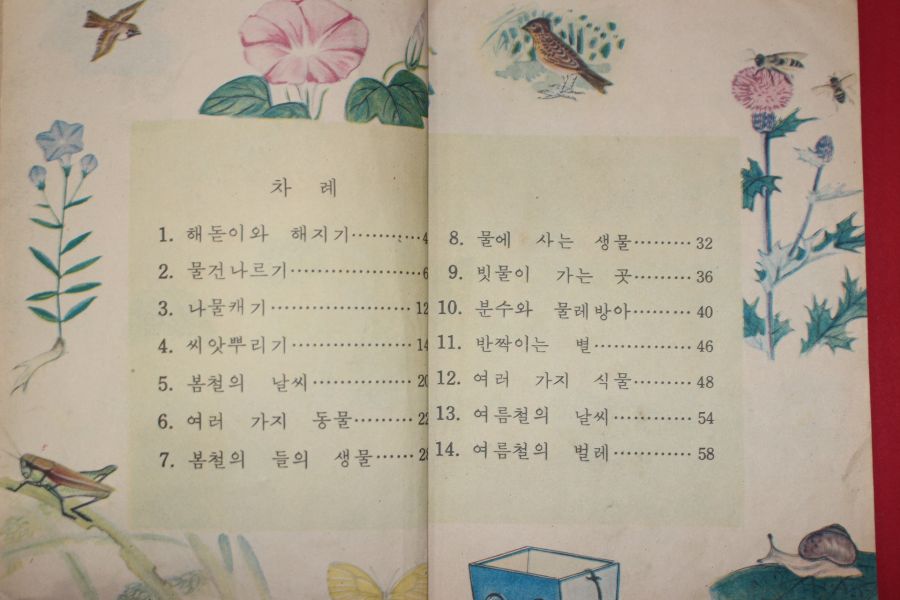 차 례
1. 해돋이와 해지기 ········· 4
2. 물건나르기 ················ 6
3. 나물캐기 ·················· 12
4. 씨앗뿌리기 ················ 14
5. 봄철의 날씨 ·············· 20
6. 여러 가지 동물 ········· 22
7. 봄철의 들의 생물 ······ 28
8. 물에 사는 생물 ········· 32
9. 빗물이 가는 곳 ········· 36
10. 분수와 물레방아 ········· 40
11. 반짝이는 별 ············· 46
12. 여러 가지 식물 ········· 48
13. 여름철의 날씨 ············ 54
14. 여름철의 벌레 ············ 58